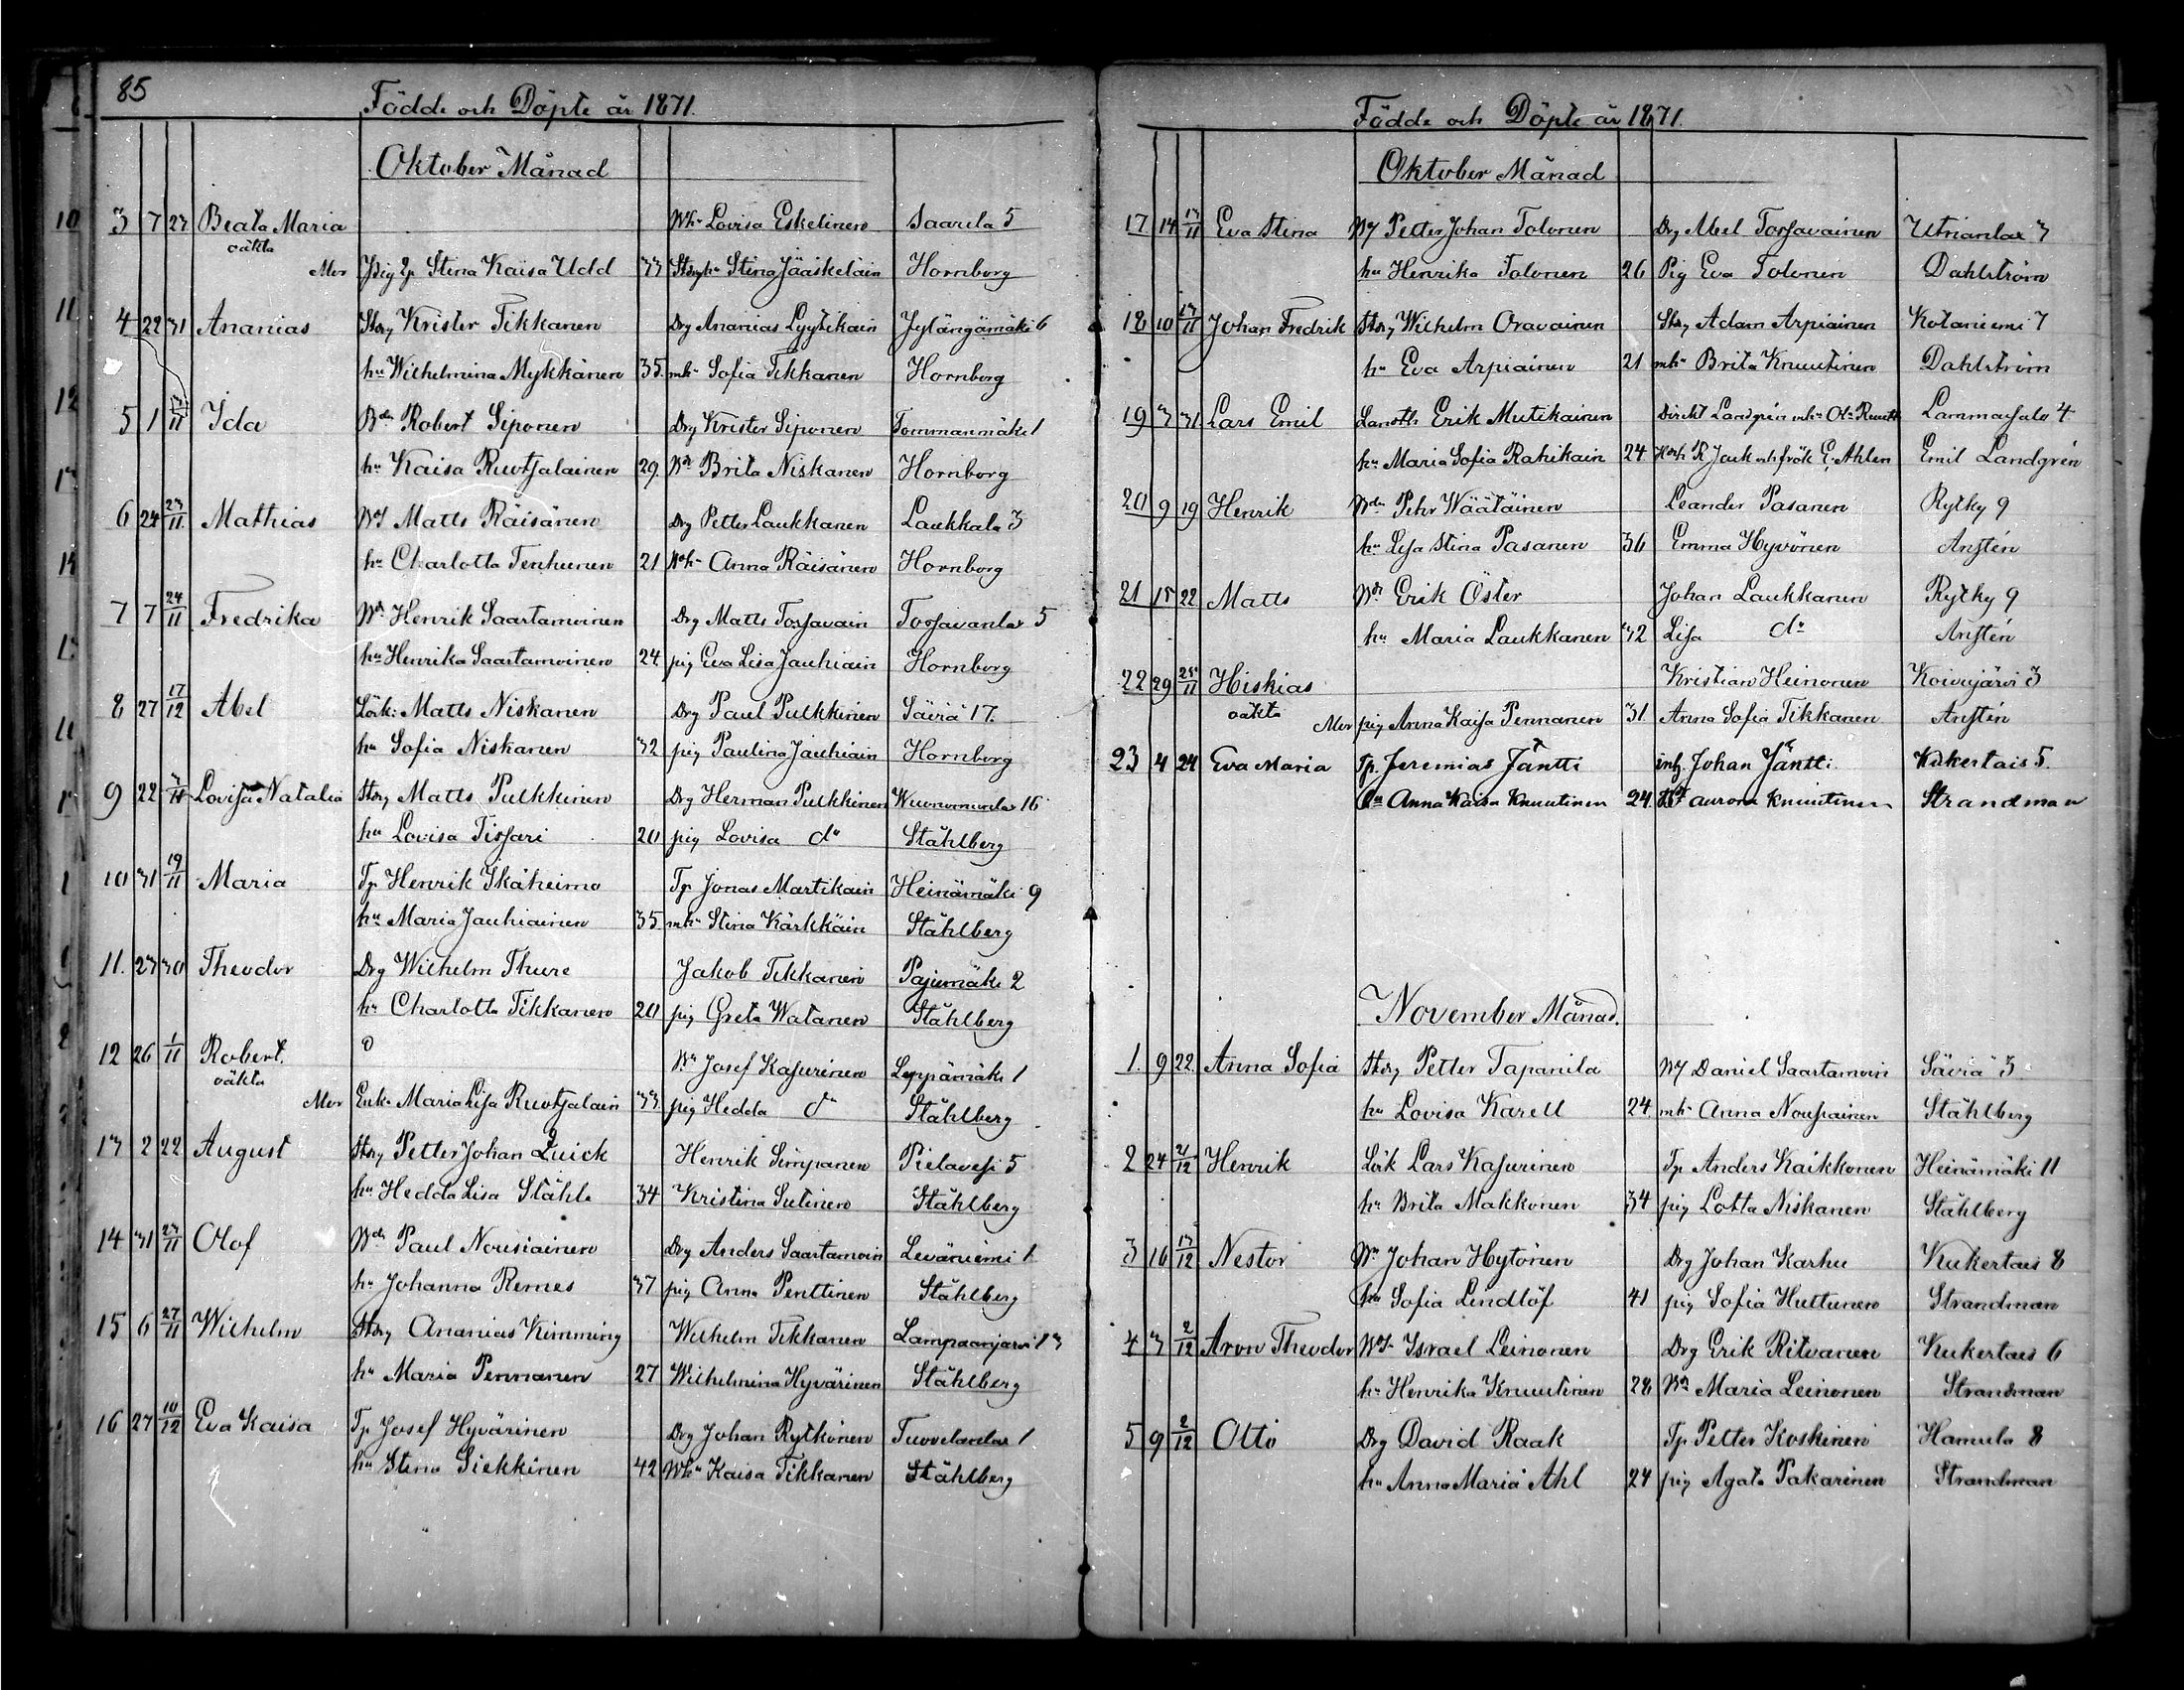 85
Födde och Döpte år 1871.
Oktober Månad
3 7 27 Beata Maria Whu Lovisa Eskelinen Saarela 5
oäkta Mor Pig Stina Kaisa Udd 33 Stina Jääskeläin Hornborg
4 22 31 Ananias Stdrg Krister Tikkanen Drg Ananias Lyytikäin Jylängömäki 6
hu Wilhelmina Mykkänen 35 mhu Sofia Tikkanen Hornborg
5 1 Ida Bdn Robert Siponen Drg Krister Siponen Tommanmäki 1
hu Kaisa Ruotsalainen 29 Brita Niskanen Hornborg
6 24 23/11 Mathias Matts Räisänen Drg Petter Laukkanen Laukkala 3
hu Charlotta Tenhunen 21 Anna Räisänen Hornborg
7 7 24/11 Fredrika Henrik Saastamoinen Drg Matts Tossavain Tossavanlax 5
hu Henrika Saastamoinen 24 pig Eva Lisa Jauhiain Hornborg
8 27 17/12 Abel Lösk: Matts Niskanen Drg Paul Pulkkinen Säviä 17.
hu Sofia Niskanen 32 pig Paulina Jauhiain Hornborg
9 22 Lovisa Natalia Stdrg Matts Pulkkinen Drg Herman Pulkkinen 16
hu Lovisa Tissari 20 pig Lovisa do Ståhlberg
10 31 19/11 Maria Tp Henrik Ikäheimo Tp Jonas Martikain Heinämäki 9
hu Maria Jauhiainen 35 mhu Stina Kärkkäin Ståhlberg
11. 23 30 Theodor Drg Wilhelm Thure Jakob Tikkanen Pajumäki 2
hu Charlotta Tikkanen 20 pig Greta Watanen Ståhlberg
12 26 1/11 Robert. Josef Kasurinen Leppämäki 1
oäkta Mor Enk. Maria Lisa Ruotsalain 33 pig Hedda do Ståhlberg
13 2 22 August Stdrg Petter Johan Quick Henrik Simpanen Pielavesi 5
hu Hedda Lisa Ståhle 34 Kristina Sutinen Ståhlberg
14 31 23/11 Olof Paul Nousiainen Drg Anders Saastamoin Leväniemi 1
hu Johanna Remes 37 pig Anna Penttinen Ståhlberg
15 6 27/11 Wilhelm Stdrg Ananias Kimming Wilhelm Tikkanen Lampaanjärvi 13
hu Maria Pennanen 27 Wilhelmina Hyvärinen Ståhlberg
16 27 10/12 Eva Kaisa Tp Josef Hyvärinen Drg Johan Rytkönen Tuovilanlax 1
hu Stina Siekkinen 42 Whu Kaisa Tikkanen Ståhlberg
Födde och Döpte år 1871.
Oktober Månad
17 14 13/11 Eva Stina Petter Johan Tolonen Drg Abel Tossavainen Utrianlax 3
hu Henrika Tolonen 26 Pig Eva Tolonen Dahlström
18 10 13/11 Johan Fredrik Stdrg Wilhelm Oravainen Stdrg Adam Arpiainen Kotaniemi 7
hu Eva Arpiainen 21 mhu Brita Knuutinen Dahlström
19 3 31 Lars Emil Erik Mutikainen Direkt Landgrén Lammassalo 4
hu Maria Sofia Rahikain 24 frök E. Ahlen Emil Landgrén
20 9 19 Henrik Pehr Väätäinen Leander Pasanen Rytky 9
hu Lisa Stina Pasanen 36 Emma Hyvönen Anstén
21 15 22 Matts Erik Öster Johan Laukkanen Rytky 9
hu Maria Laukkanen 32 Lisa do Anstén
22 29 25/11 Hiskias Kristian Heinonen Koivujärvi 3
oäkta Mor pig Anna Kaisa Pennanen 31. Anna Sofia Tikkanen Anstén
23 4 24 Eva Maria Tp. Jeremias Jäntti inh. Johan Jäntti Kukertais 5.
hu Anna Kaisa Knuutinen 24. aurora Knuutinen Strandman
November Månad.
1. 9 22. Anna Sofia Stdrg Petter Tapanila Daniel Saastamoin Säviä 3
hu Lovisa Karell 24. mhu Anna Nousiainen Ståhlberg
2 24 21/12 Henrik Lösk Lars Kasurinen Tp Anders Kaikkonen Heinämäki 11
hu Brita Makkonen 34 pig Lotta Niskanen Ståhlberg
3 16 13/12 Nestor Johan Hytönen Drg Johan Karhu Kukertais 8
hu Sofia Lindlöf 41 pig Sofia Huttunen Strandman
4 3 2/12 Aron Theodor Israel Leinonen Drg Erik Ritvanen Kukertais 6
hu Henrika Knuutinen 28 Maria Leinonen Strandman
5 9 2/12 Otto Drg David Raak Tp Petter Koskinen Hamula 8
hu Anna Maria Ahl 24 pig Agata Pakarinen Strandman